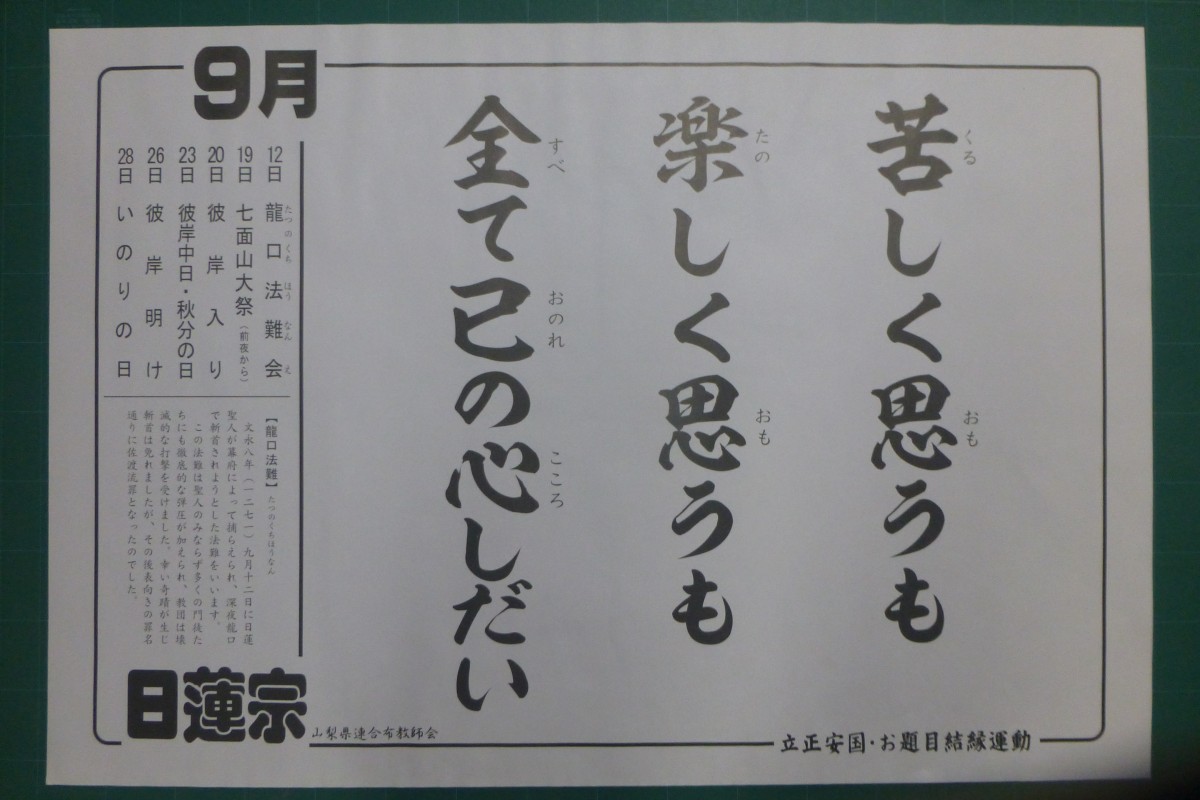 苦しく思うも
楽しく思うも
全て己の心しだい
くる
おも
たの
おも
すべ
おのれ
こころ
9月
12日 龍口法難会
たつのくちほうなんえ
19日 七面山大祭(前夜から)
20日 彼岸入り
23日 彼岸中日・秋分の日
26日 彼岸明け
28日 いのりの日
【龍口法難】たつのくちほうなん
文永八年(一二七一)九月十二日に日蓮
聖人が幕府によって捕らえられ、深夜龍口
で斬首されようとした法難をいいます。
この法難は聖人のみならず多くの門徒た
ちにも徹底的な弾圧が加えられ、教団は壊
滅的な打撃を受けました。幸い奇蹟が生じ
斬首は免れましたが、その後表向きの罪名
通りに佐渡流罪となったのでした。
日蓮宗
山梨県連合布教師会
立正安国・お題目結縁運動